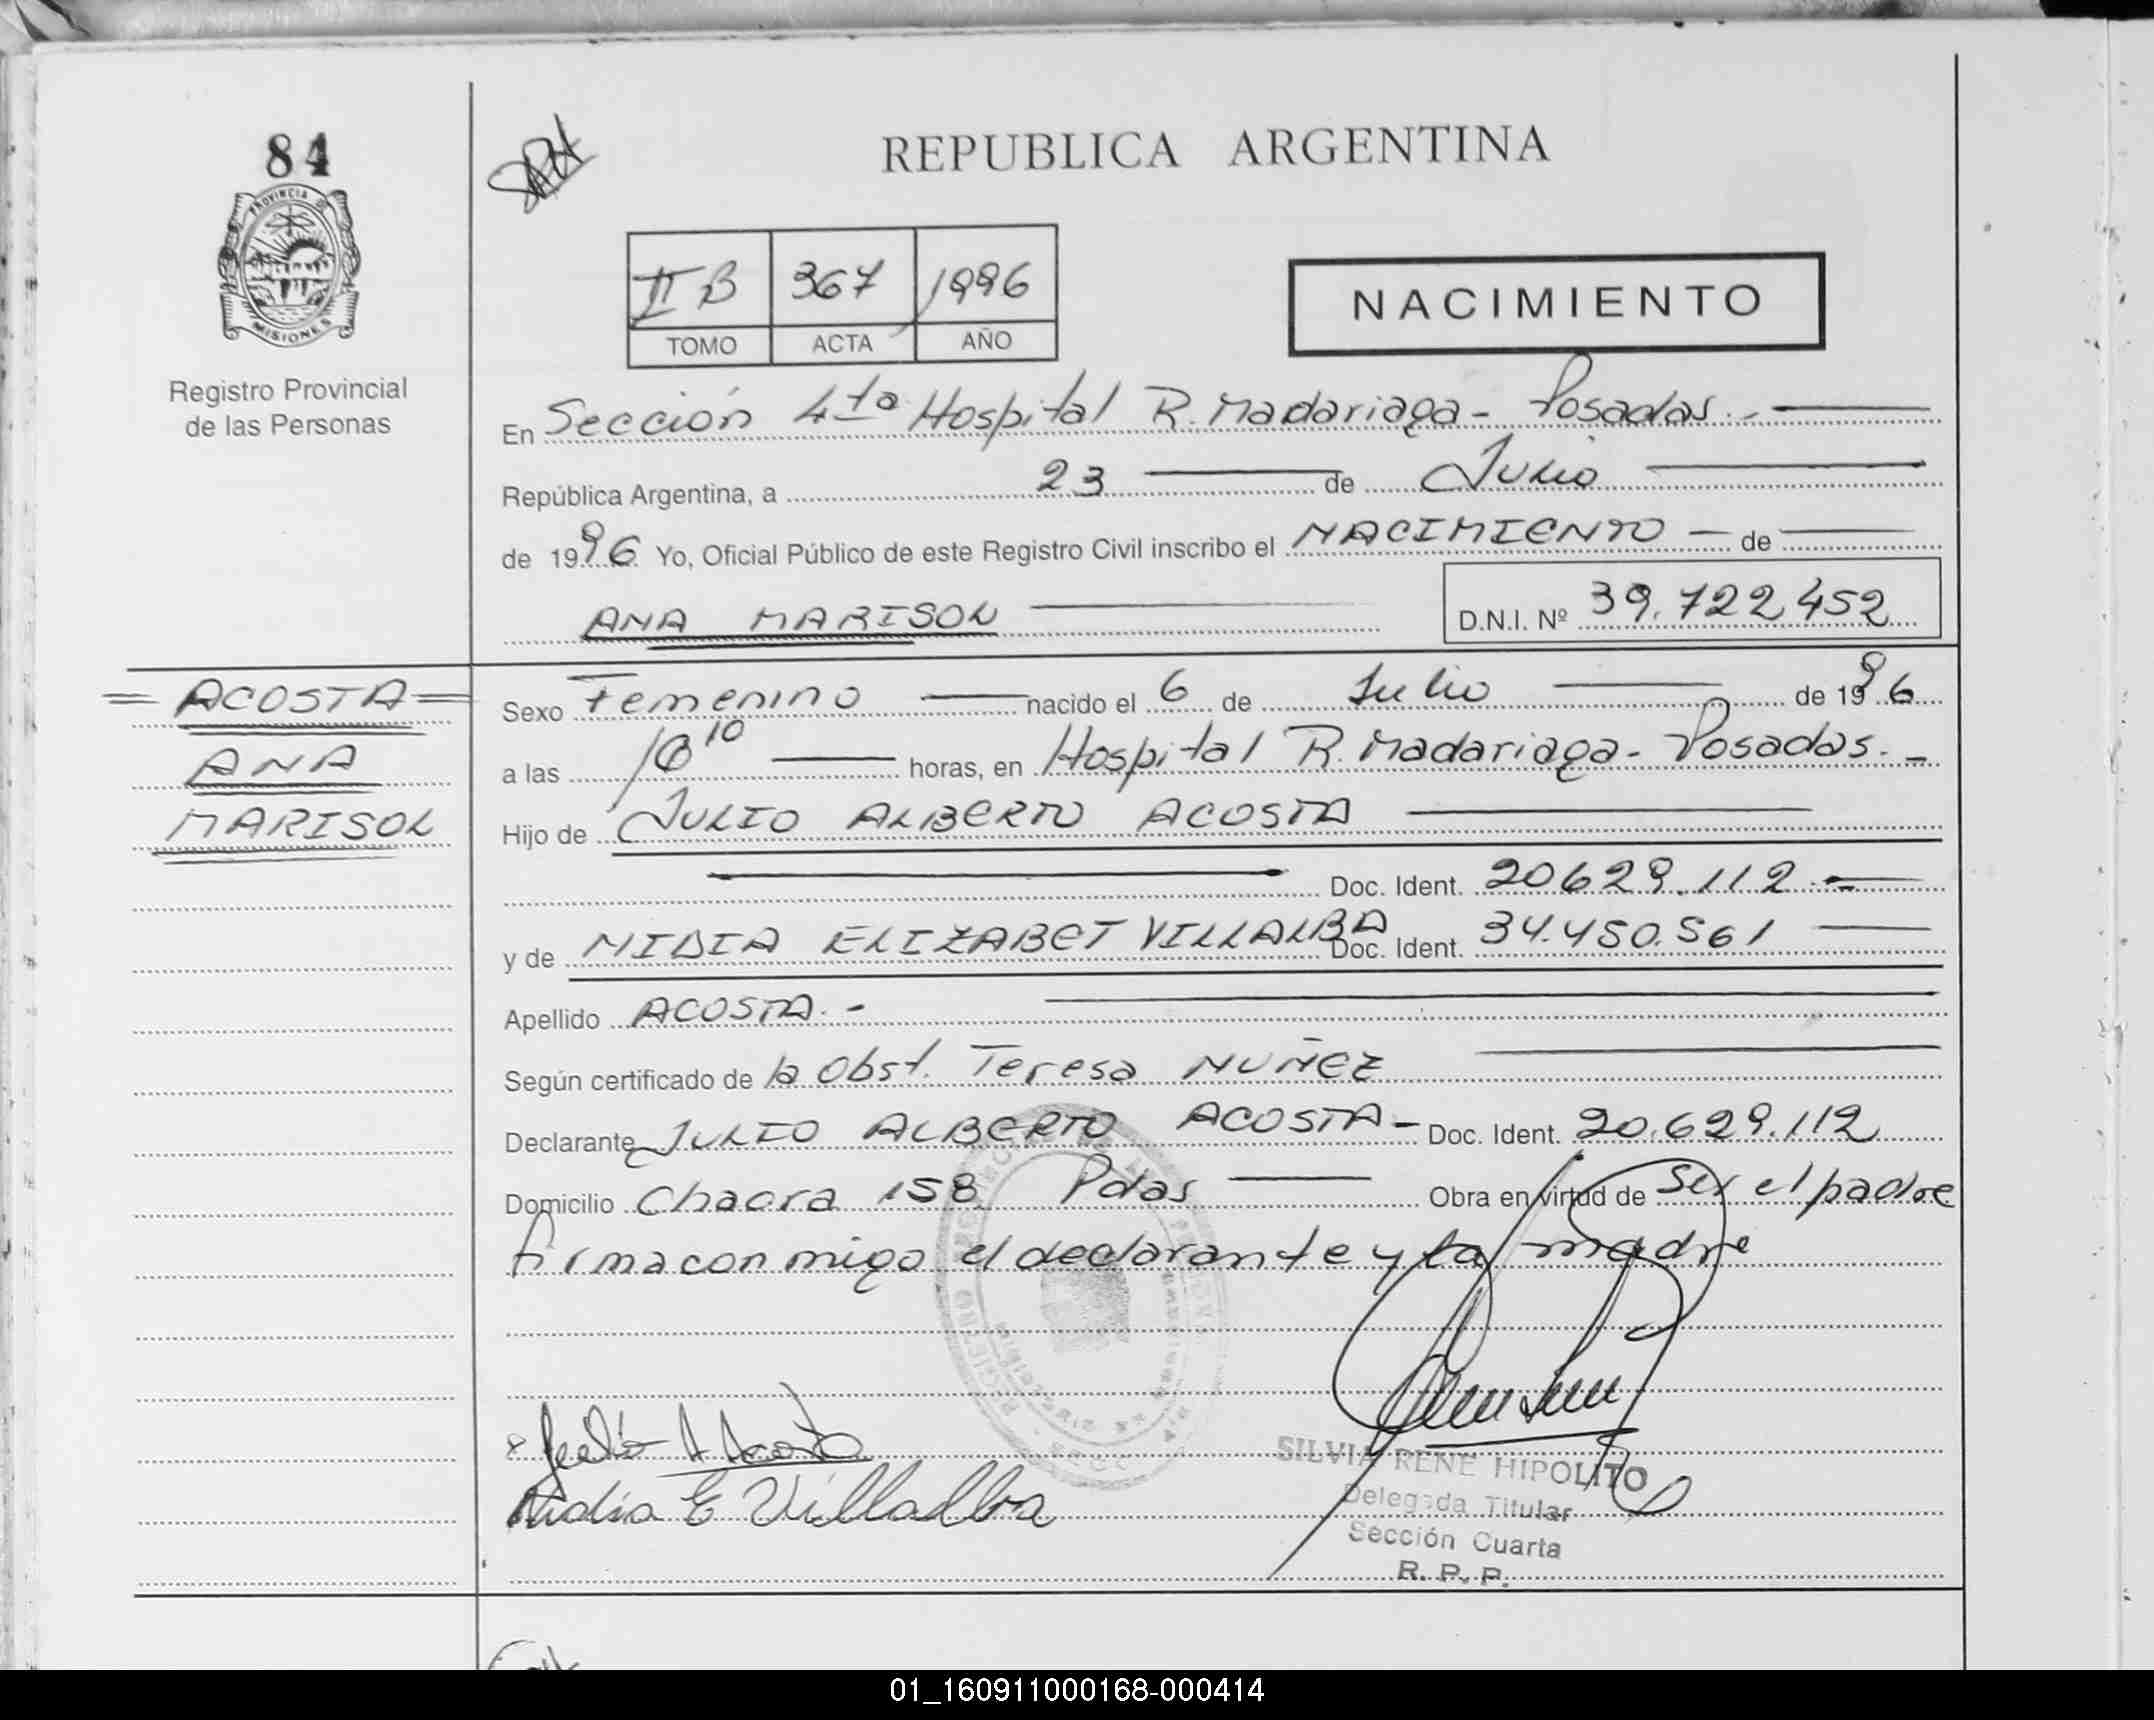 84
PROVINCIA DE
MISIONES
Registro Provincial
de las Personas
REPUBLICA ARGENTINA
II B 367 1996
TOMO ACTA AÑO
NACIMIENTO
En Sección 4ta Hospital R. Madariaga - Posadas.-
República Argentina, a 23 de Julio
de 1996 Yo, Oficial Público de este Registro Civil inscribo el NACIMIENTO - de
ANA MARISOL
D.N.I. Nº 39.722.452
= ACOSTA =
ANA
MARISOL
Sexo Femenino nacido el 6 de Julio de 1996
a las 10 horas, en Hospital R. Madariaga - Posadas.-
Hijo de JULIO ALBERTO ACOSTA
Doc. Ident. 20629.112.-
y de NIDIA ELIZABET VILLALBA Doc. Ident. 34.450.561
Apellido ACOSTA.-
Según certificado de la Obst. Teresa NUÑEZ
Declarante JULIO ALBERTO ACOSTA - Doc. Ident. 20.629.112
Domicilio Chacra 158 Pdas Obra en virtud de Ser el padre
firma conmigo el declarante y la madre
Julio A Acosta
Nidia E Villalba
SILVIA RENE HIPOLITO
Delegada Titular
Sección Cuarta
R. P. P.
01_160911000168-000414